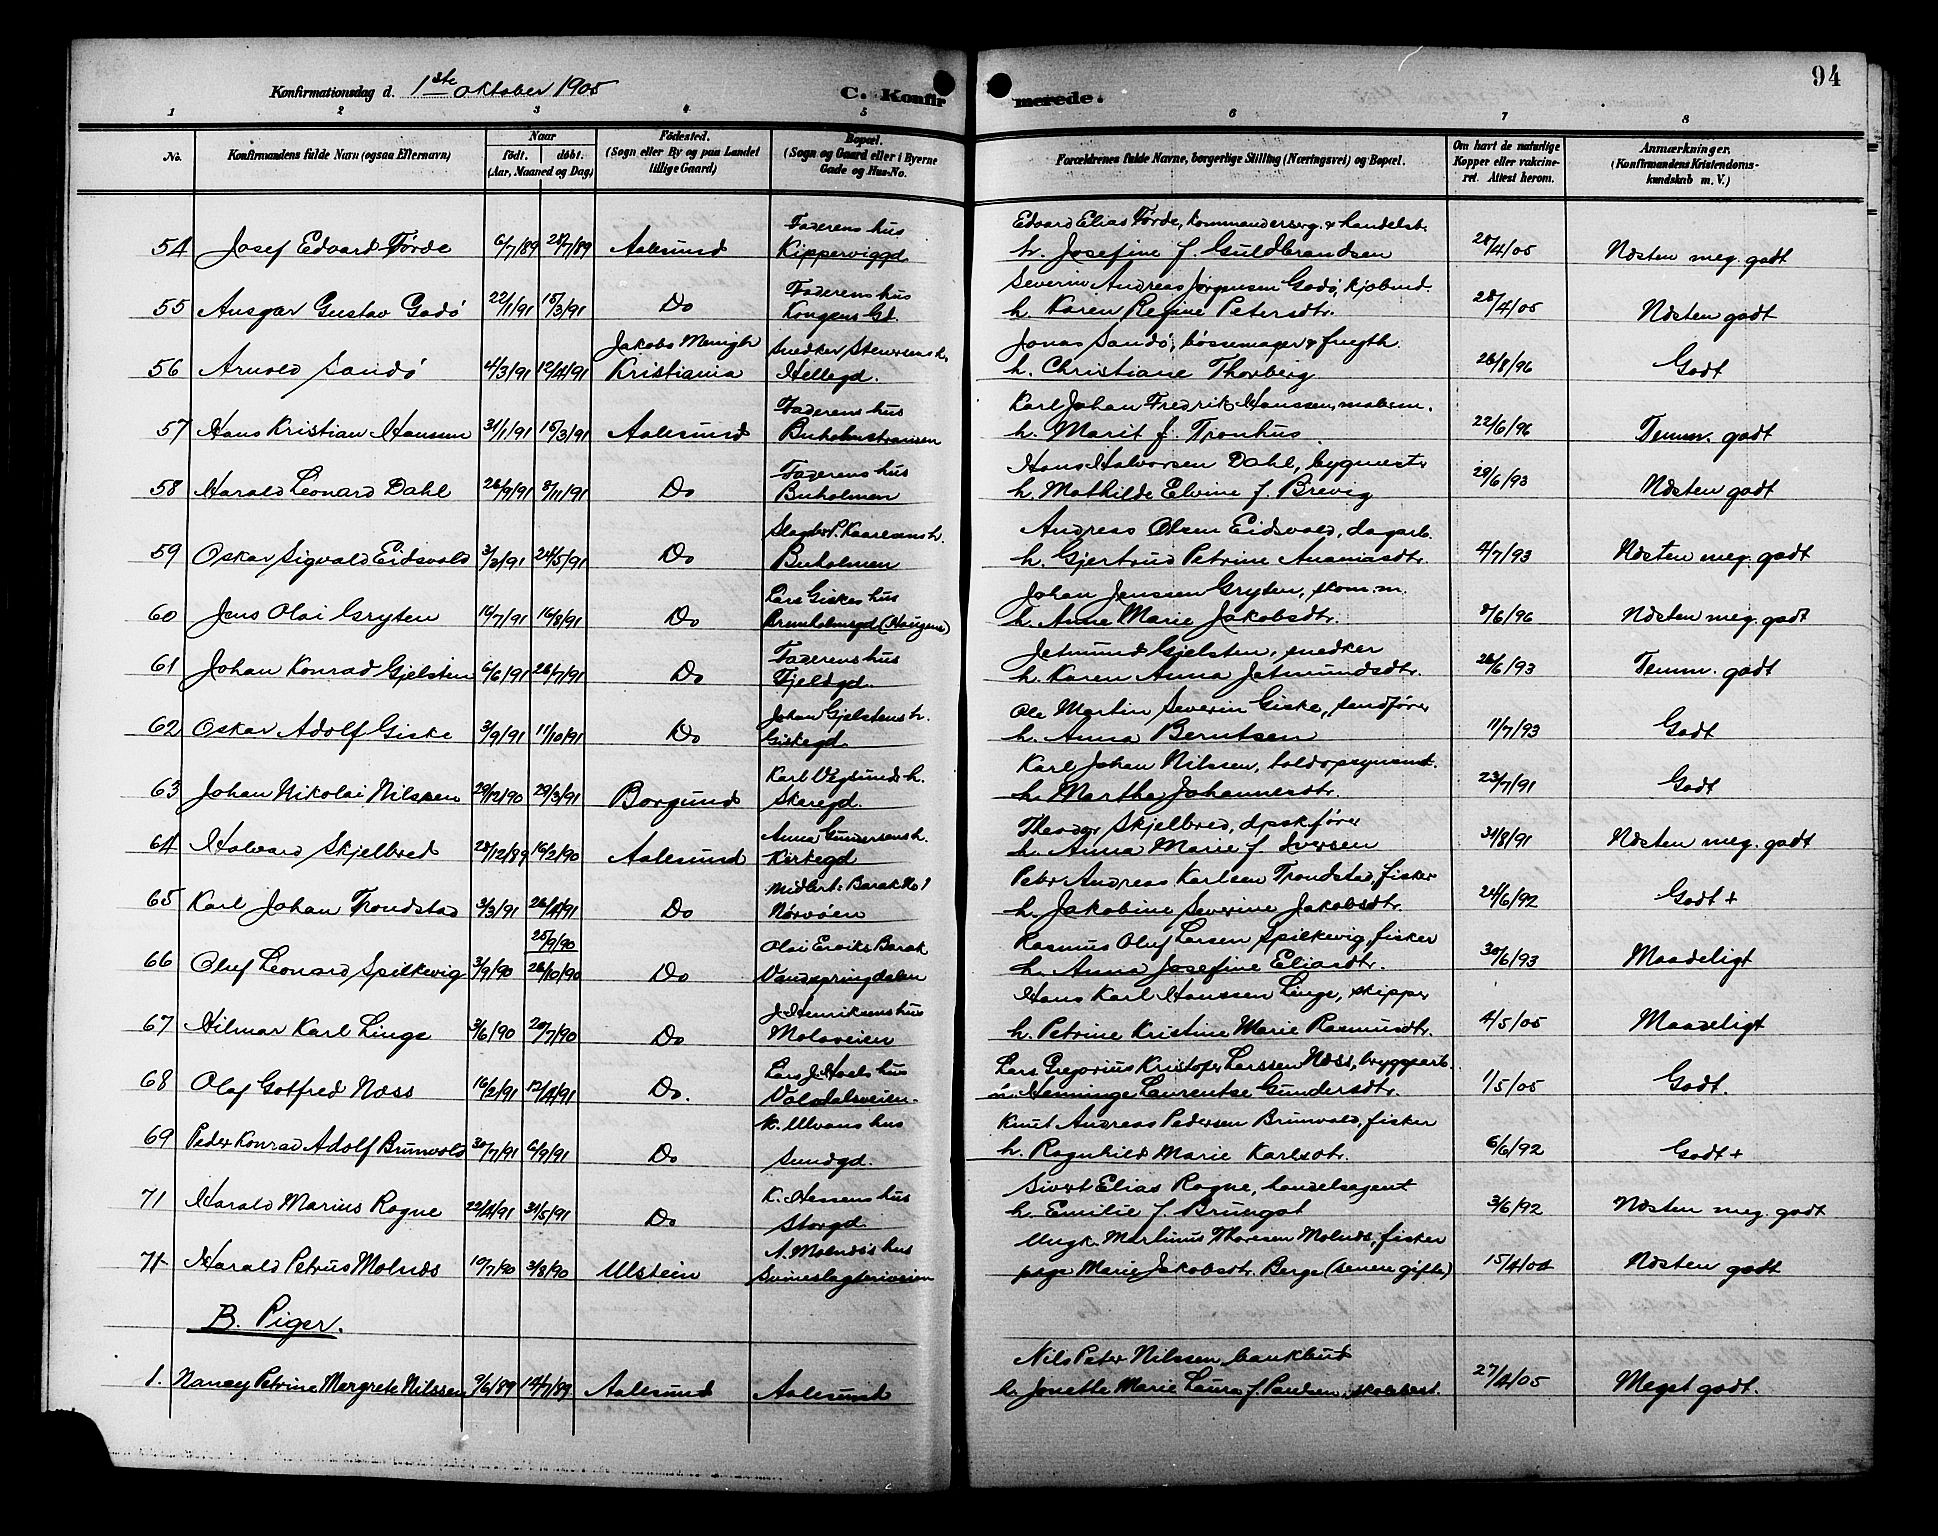 94
Konfirmationsdag d. 1ste Oktober 1905
C. Konfirmerede.
1 2 3 4 5 6 7 8
No.
Konfirmandens fulde Navn (ogsaa Efternavn)
Naar
født. døbt.
(Aar, Maaned og Dag)
Fødested.
(Sogn eller By og paa Landet
tillige Gaard)
Bopæl.
(Sogn og Gaard eller i Byerne
Gade og Hus-No.
Forældrenes fulde Navne, borgerlige Stilling (Næringsvei) og Bopæl.
Om havt de naturlige
Kopper eller vakcine-
ret. Attest herom.
Anmærkninger.
(Konfirmandens Kristendoms-
kundskab m. V.)
Faderens hus Edvard Elias Förde, kommandersg. & handelsb.
54 Josef Edvard Förde 6/7/89 28/7/89 Aalesund Kipperviggd. h. Josefine f. Guldbrandsen 28/4/05 Næsten meg. godt
Faderens hus Severin Andreas Jörgensen Godö, kjöbmd.
55 Ansgar Gustav Godö 22/1/91 15/3/91 Do Kongens Gd. h. Karen Regine Petersdtr. 28/4/05 Næsten godt
Jakobs Menigh Snedker Stenersens h. Jonas Sandö, bössemager & fvgth.
56 Arnold Sandö 4/3/91 12/4/91 Kristiania Hellegd. h. Christiane Thorberg 26/8/96 Godt
Faderens hus Karl Johan Fredrik Hanssen, malerm.
57 Hans Kristian Hanssen 31/1/91 15/3/91 Aalesund Buholmstransen h. Marit f. Tronhus 22/6/96 Temm. godt
Faderens hus Hans Halvorsen Dahl, bygmestr
58 Harald Leonard Dahl 26/9/91 8/11/91 Do Buholmen h. Mathilde Elvine f. Brevig 29/6/93 Næsten godt
Slagter P. Kaaresens h. Andreas Olsen Eidsvold, dagarb.
59 Oskar Sigvald Eidsvold 3/2/91 24/5/91 Do Buholmen h. Gjertrud Petrine Ananiasdtr. 4/7/93 Næsten meg. godt
Lars Giskes hus Johan Jenssen Gryten, skom.m.
60 Jens Olai Gryten 16/7/91 16/8/91 Do Brunholmgd (Haugens) h. Anne Marie Jakobsdtr. 8/6/96 Næsten meg. godt
Faderens hus Jetmund Gjelsten, snedker
61 Johan Konrad Gjelsten 6/6/91 26/7/91 Do Fjeldgd. h. Karen Anna Jetmundsdtr. 26/6/93 Temm. godt
Johan Gjelstens h. Ole Martin Severin Giske, sendförer
62 Oskar Adolf Giske 3/9/91 11/10/91 Do Giskegd. h. Anna Berntsen 11/7/93 Godt
Karl Vegsunds h. Karl Johan Nilssen, toldopsynsmd.
63 Johan Nikolai Nilssen 29/12/90 29/3/91 Borgund Skaregd. h. Marthe Johannesdtr. 23/7/91 Godt
Anna Gundersens h. Theodor Skjelbred, dpskfører
64 Halvard Skjelbred 28/12/89 16/2/90 Aalesund Kirkegd h. Anna Marie f. Iversen 31/8/91 Næsten meg. godt
Midlert. Barak No 1 Peter Andreas Karlsen Trondstad, fisker
65 Karl Johan Trondstad 3/3/91 26/4/91 Do Nørvøen h. Jakobine Severine Jakobsdtr. 24/6/92 Godt +
25/9/90 Olai Erviks Barak Rasmus Oluf Larsen Spilkevig, fisker
66 Oluf Leonard Spilkevig 3/9/90 26/10/90 Do Vandspringdalen h. Anna Josefine Eliasdtr. 30/6/93 Maadeligt
J. Henriksens hus Hans Karl Hanssen Linge, skipper
67 Hilmar Karl Linge 3/6/90 20/7/90 Do Moloveien h. Petrine Kristine Marie Rasmusdtr. 4/5/05 Maadeligt
Lars J. Hoels hus Lars Gregorius Kristofer Larssen Næss, bryggearb.
68 Olaf Gotfred Næss 16/2/91 12/4/91 Do. Voldsdalsveien. Henninge Laurentse Gundersdtr. 1/5/05 Godt.
K. Ulvans hus Knut Andreas Pedersen Brunvold, fisker
69 Peder Konrad Adolf Brunvold 30/7/91 6/9/91 Do Sundgd. h. Ragnhild Marie Karlsdtr. 6/6/92 Godt +
K. Hessens hus Sivert Elias Rogne, handelsagent
71 Harald Marius Rogne 22/4/91 31/5/91 Do Storgd. h. Emilie f. Brungot 3/6/92 Næsten meg. godt
A. Molnæs's hus Ungk. Martinus Thoresen Molnæs, fisker
71 Harald Petrus Molnæs 10/7/90 3/8/90 Ulstein Svineslagteriveien pige Marie Jakobsdtr. Berge (senere gifte) 15/4/04 Næsten godt
B. Piger.
Nils Peter Nilssen, bankbud
1. Nancy Petrine Margrete Nilssen 9/6/89 14/7/89 Aalesund Aalesund h. Jonette Marie Laura f. Paulsen, skolebest. 27/4/05 Meget godt.